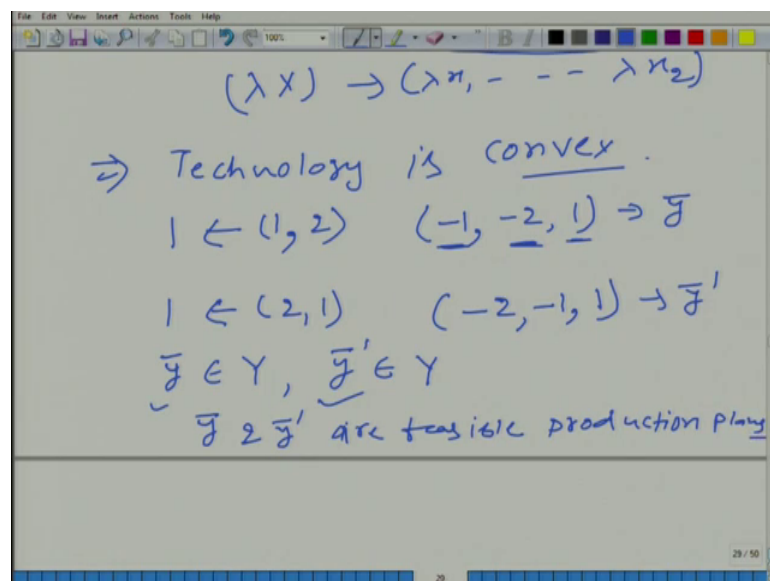 File Edit View Insert Actions Tools Help
100%
B I
(λX) → (λx, - - - λx₂)
⇒ Technology is convex.
1 ← (1, 2) (-1, -2, 1) → ȳ
1 ← (2, 1) (-2, -1, 1) → ȳ'
ȳ ∈ Y, ȳ' ∈ Y
ȳ & ȳ' are feasible production plans
29 / 50
29